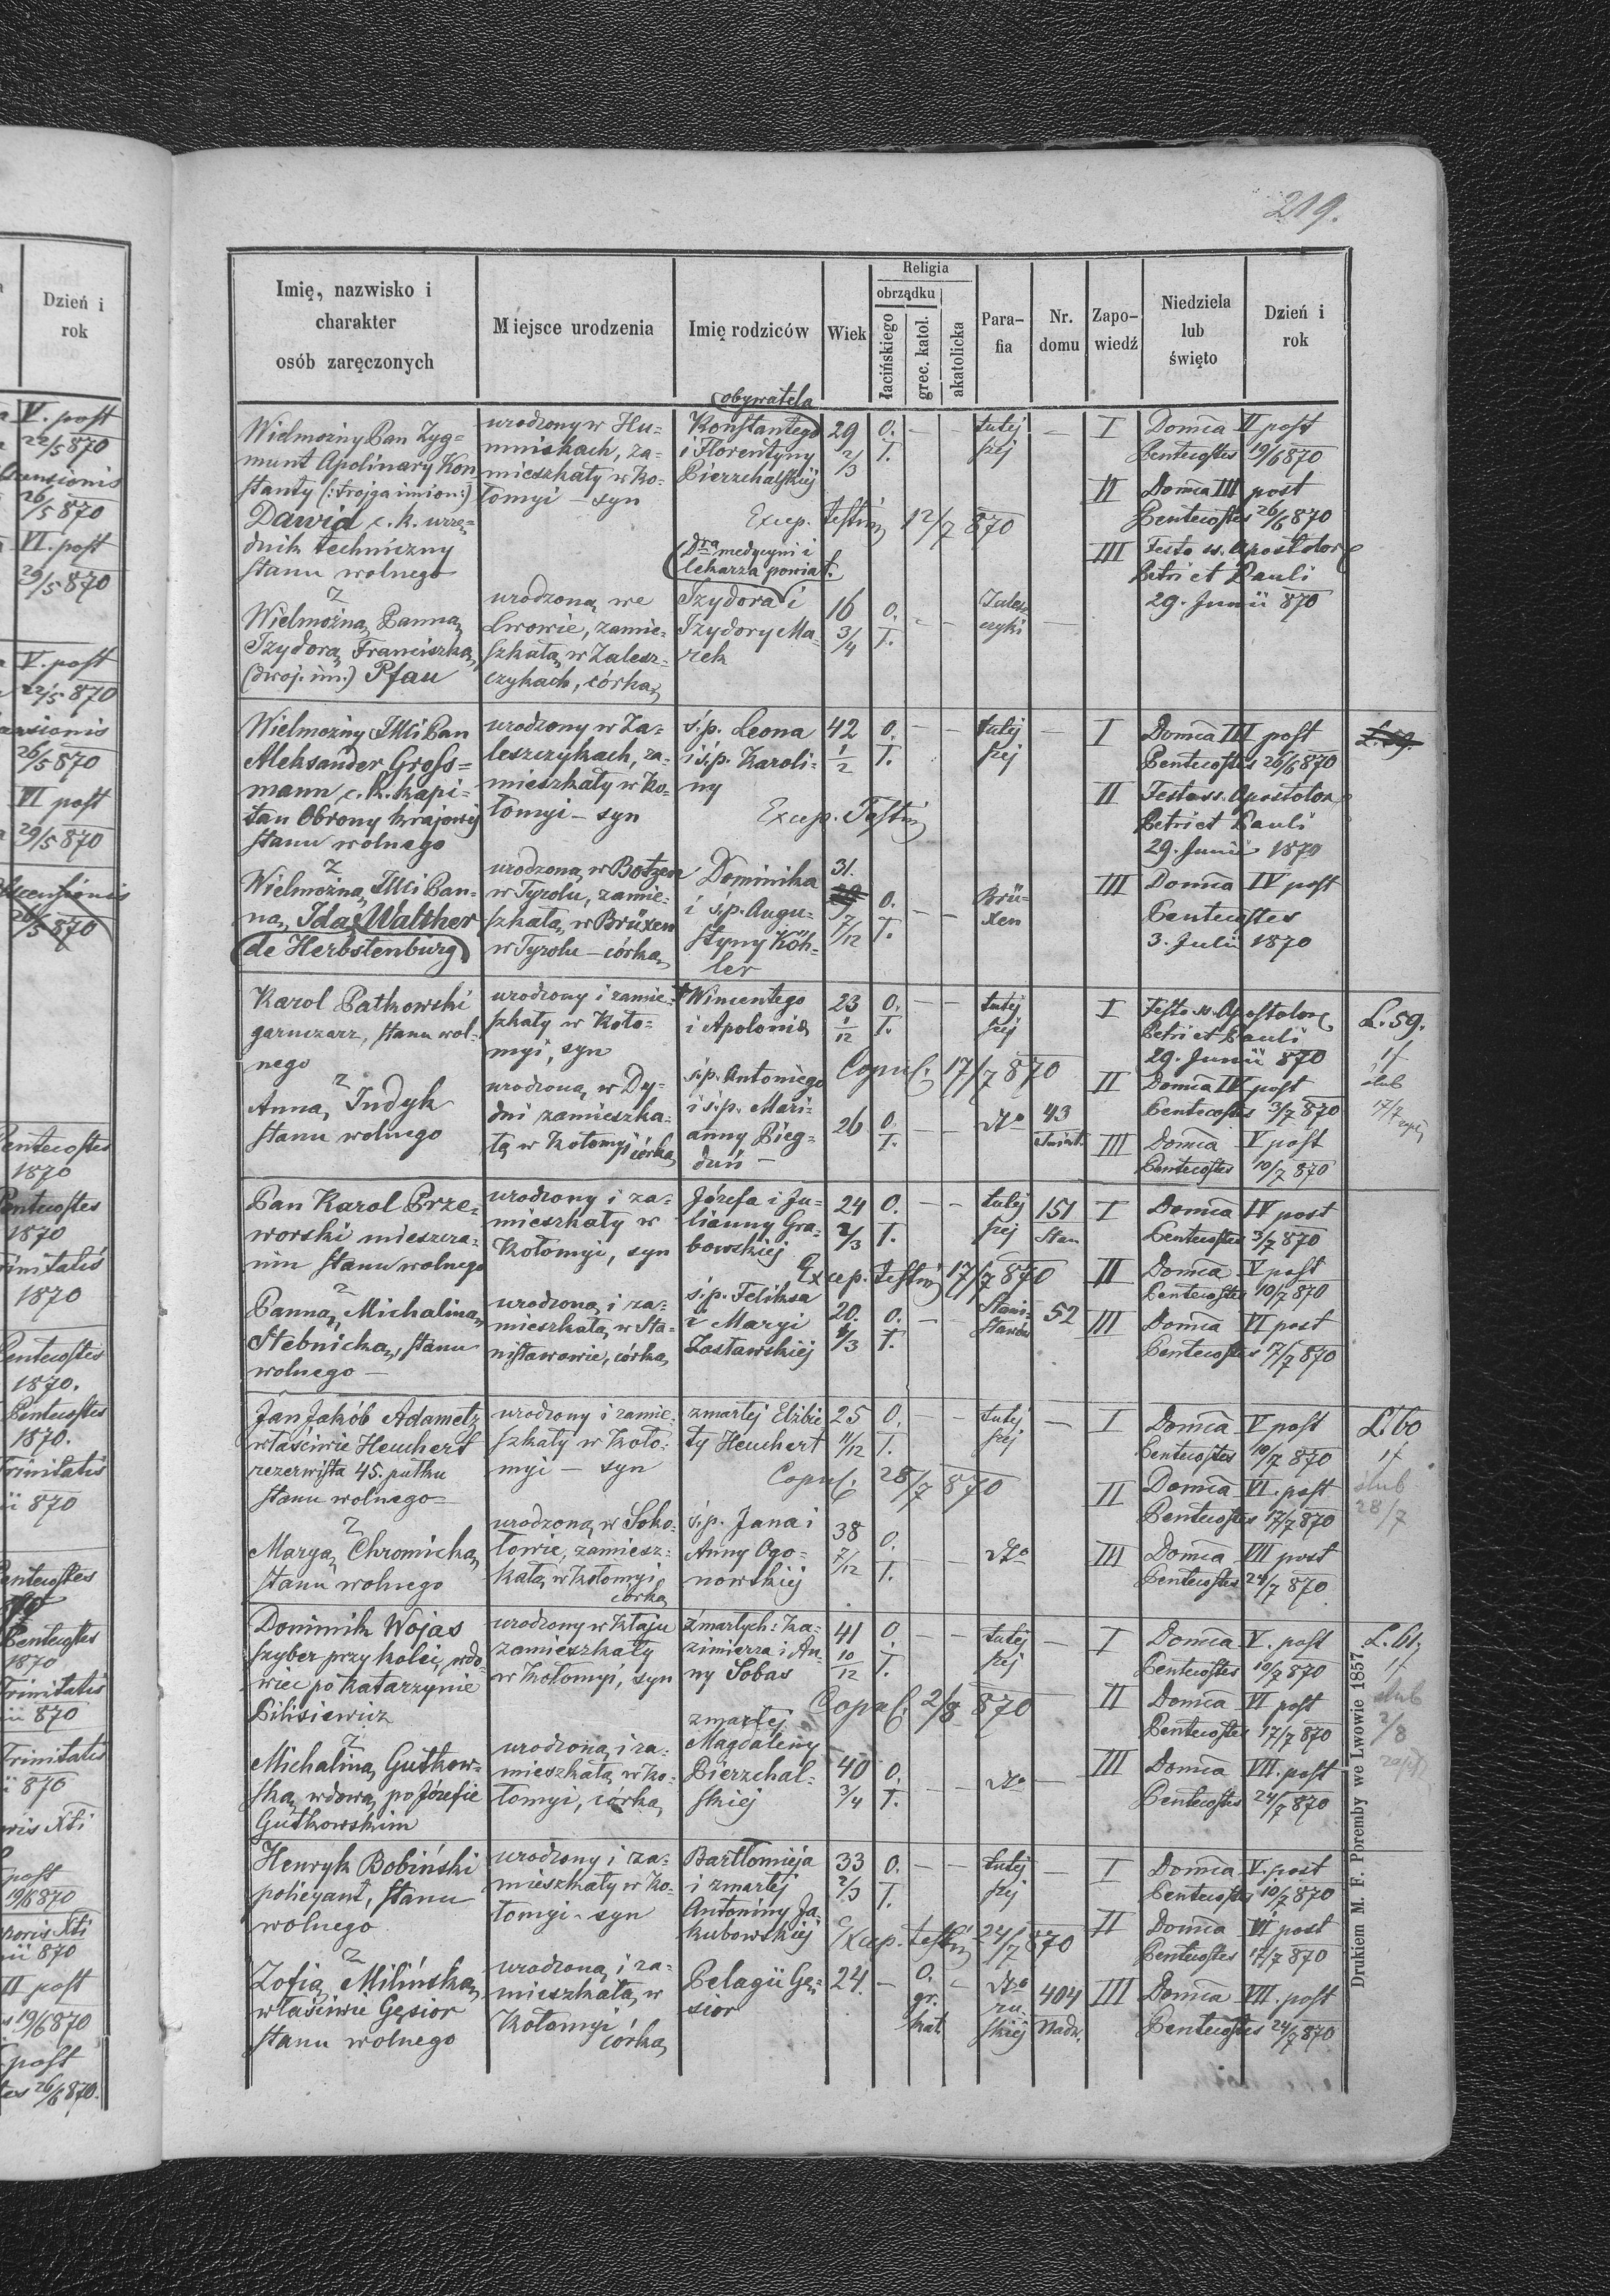 219.
Dzień i
rok
V. post
22/5 870
Ascensionis
26/5 870
VI. post
29/5 870
V. post
22/5. 870
26/5 870
VI post
29/5 870
Ascensionis
26/5 870
Pentecostes
1870
Pentecostes
1870
Trinitatis
1870
Pentecostes
1870.
Pentecostes
1870.
Trinitatis
870
Pentecostes
Pentecostes
1870
Trinitatis
870
Trinitatis
870
post
19/6 870
870
II post
19/6 870
post
26/6 870.
Imię, nazwisko i
charakter
osób zaręczonych
Miejsce urodzenia
Imię rodziców
Wiek
Religia
obrządku
łacińskiego
grec. katol.
akatolicka
Para-
fia
Nr.
domu
Zapo-
wiedź
Niedziela
lub
święto
Dzień i
rok
Wielmożny Pan Zyg=
munt Apolinary Kon
stanty (:trojga imion:)
Dawid c.k. urzę=
dnik techniczny
stanu wolnego
urodzony w Hu=
mniskach, za=
mieszkały w Ko=
łomyi – syn
obywatela
Konstantego
i Florentyny
Pierzchalskiej
29
2/3
O.
Ł.
tutej
szej
Excep. Testim 12/7 870
I Domca II post
Pentecostes 19/6 870
II Domca III post
Pentecostes 26/6 870
III Festo ss. Apostolor
Petri et Pauli
29. Junii 870
z
Wielmożną Panną
Izydorą Franciszką
(dwoj. im.) Pfau
urodzoną we
Lwowie, zamie=
szkałą w Zalesz=
czykach, córką
Dra medycyni i
lekarza powiat.
Izydora i
Izydory Ma=
rek
16
3/4
O.
Ł.
Zalesz
czyki
Wielmożny JMci Pan
Aleksander Gross=
mann c.k. kapi=
tan Obrony krajowej
stanu wolnego
urodzony w Za=
leszczykach, za=
mieszkały w Ko=
łomyi – syn
ś.p. Leona
i ś.p. Karoli=
ny
42
1/2
O.
Ł.
tutej
szej
Excep. Testim
I Domca III post
Pentecostes 26/6 870
II Festo ss. Apostolor
Petri et Pauli
29. Junii 1870
III Domca IV post
Pentecostes
3. Julii 1870
L. 59.
z
Wielmożną JMci Pan=
ną Idą Walther
de Herbstenburg
urodzoną w Botzen
w Tyrolu, zamie=
szkałą w Brüxen
w Tyrolu – córką
Dominika
i ś.p. Augu=
styny Köh=
ler
31.
7/12
O.
Ł.
Brü=
xen
Karol Patkowski
garnczarz, stanu wol=
nego
urodzony i zamie=
szkały w Koło=
myi, syn
+ Wincentego
i Apolonii
23
1/12
O.
Ł.
tutej
szej
Copul. 17/7 870
I Festo ss. Apostolor
Petri et Pauli
29. Junii 870
II Domca IV post
Pentecostes 3/7 870
III Domca V post
Pentecostes 10/7 870
L. 59.
ślub
17/7
z
Anną Indyk
stanu wolnego
urodzoną w Dy=
dni zamieszka=
łą w Kołomyi córką
ś.p. Antoniego
i ś.p. Mari=
anny Bieg=
duń
26
O.
Ł.
dto
43
Pan Karol Prze=
worski mieszcza=
nin stanu wolnego
urodzony i za=
mieszkały w
Kołomyi, syn
Józefa i Ju=
lianny Gra=
bowskiej
24
2/3
O.
Ł.
tutej
szej
151
Stan
Excep. testim 17/7 870
I Domca IV post
Pentecostes 3/7 870
II Domca V post
Pentecostes 10/7 870
III Domca VI post
Pentecostes 17/7 870
z
Panną Michaliną
Stebnicką, stanu
wolnego
urodzoną i za=
mieszkałą w Sta=
nisławowie, córką
ś.p. Feliksa
i Maryi
Zosławskiej
20.
1/3
O.
Ł.
Stani=
sławów
52
Jan Jakób Adametz
właściwie Heuchert
rezerwista 45. pułku
stanu wolnego=
urodzony i zamie=
szkały w Koło=
myi – syn
zmarłej Elżbie
ty Heuchert
25
11/12
O.
Ł.
tutej
szej
Copul. 28/7 870
I Domca V post
Pentecostes 10/7 870
II Domca VI. post
Pentecostes 17/7 870
III Domca VII post
Pentecostes 24/7 870
L. 60
ślub
28/7
z
Maryą Chromicką
stanu wolnego
urodzoną w Soko=
łowie, zamiesz=
kałą w Kołomyi
córką
ś.p. Jana i
Anny Ogo=
nowskiej
38
7/12
O.
Ł.
dto
Dominik Wojas
szyber przy kolei, wdo=
wiec po Katarzynie
Pilisiewicz
urodzony w Kłaju
zamieszkały
w Kołomyi, syn
zmarłych: Ka=
zimierza i An=
ny Sobas
41
10/12
O.
Ł.
tutej
szej
Copul. 2/8 870
I Domca V. post
Pentecostes 10/7 870
II Domca VI post
Pentecostes 17/7 870
III Domca VII. post
Pentecostes 24/7 870
L. 61.
ślub
2/8
z
Michaliną Gutkow=
ską wdową po Józefie
Gutkowskim
urodzoną i za=
mieszkałą w Ko=
łomyi, córką
zmarłej
Magdaleny
Pierzchal=
skiej
40
3/4
O.
Ł.
dto
Henryk Bobiński
policyant, stanu
wolnego
urodzony i za=
mieszkały w Ko=
łomyi – syn
Bartłomieja
i zmarłej
Antoniny Ja
kubowskiej
33
2/3
O.
Ł.
tutej
szej
Excep. testim 24/7 870
I Domca V. post
Pentecostes 10/7 870
II Domca VI post
Pentecostes 17/7 870
III Domca VII. post
Pentecostes 24/7 870
z
Zofią Milińską
właściwie Gęsior
stanu wolnego
urodzoną i za=
mieszkałą w
Kołomyi
córką
Pelagii Gę=
sior
24.
O.
gr.
kat.
dto
ru=
skiej
404
Nadw.
Drukiem M. F. Poremby we Lwowie 1857.